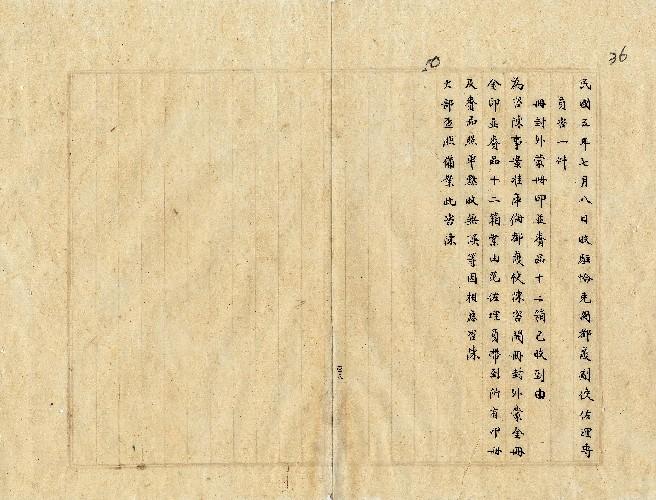 36
50
民國五年七月八日收駐恰克圖都護副使佐理專
員咨一件
冊封外蒙冊印並賚品十二箱已收到由
為咨陳事案准庫倫都護使陳咨開冊封外蒙金冊
金印並賚品十二箱業由范佐理員帶到所有印冊
及賚品照單點收無誤等因相應咨陳
大部查照備案此咨陳